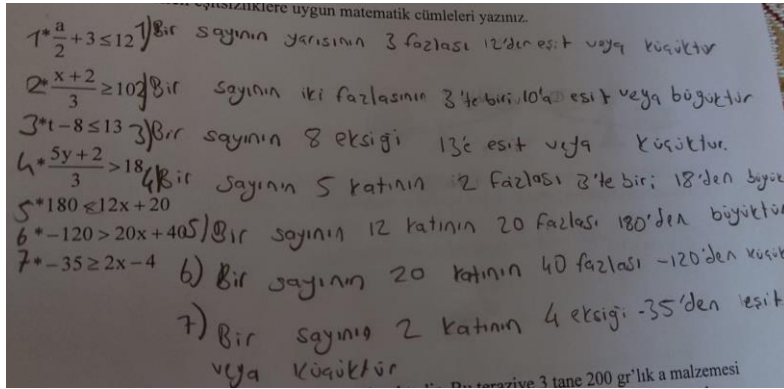 eşitsizliklere uygun matematik cümleleri yazınız.
1* a/2 + 3 ≤ 12 1) Bir sayının yarısının 3 fazlası 12'den eşit veya küçüktür
2* x + 2/3 ≥ 10 2) Bir sayının iki fazlasının 3'te biri 10'a eşit veya büyüktür
3* t − 8 ≤ 13 3) Bir sayının 8 eksiği 13'e eşit veya küçüktür.
4* 5y + 2/3 > 18 4) Bir sayının 5 katının 2 fazlası 3'te biri 18'den büyük
5* 180 ≤ 12x + 20
5) Bir sayının 12 katının 20 fazlası 180'den büyüktür
6* −120 > 20x + 40
7* −35 ≥ 2x − 4
6) Bir sayının 20 katının 40 fazlası -120'den küçük
7) Bir sayının 2 katının 4 eksiği -35'den eşit
veya küçüktür
Bu teraziye 3 tane 200 gr'lık a malzemesi